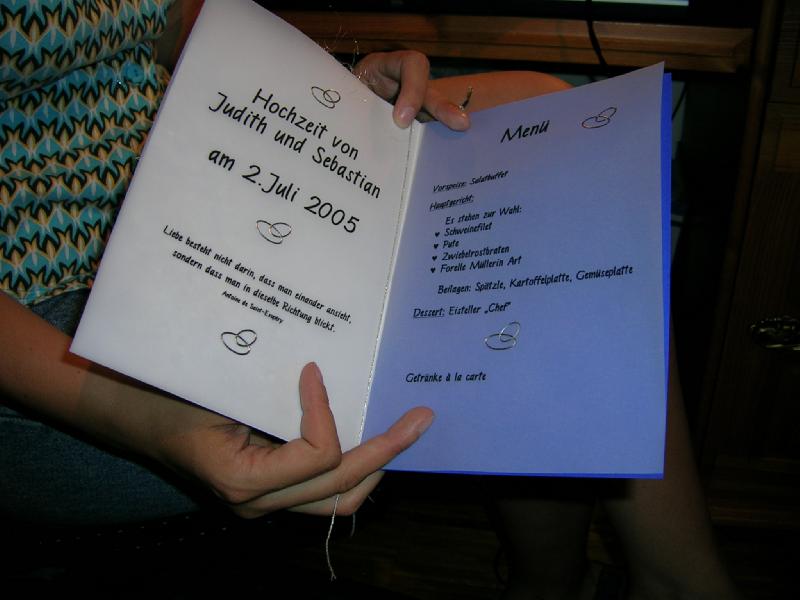 Hochzeit von
Judith und Sebastian
am 2.Juli 2005
Liebe besteht nicht darin, dass man einander ansieht,
sondern dass man in dieselbe Richtung blickt.
Antoine de Saint-Exupéry
Menü
Vorspeise: Salatbuffet
Hauptgericht:
Es stehen zur Wahl:
♥ Schweinefilet
♥ Pute
♥ Zwiebelrostbraten
♥ Forelle Müllerin Art
Beilagen: Spätzle, Kartoffelplatte, Gemüseplatte
Dessert: Eisteller „Chef“
Getränke à la carte